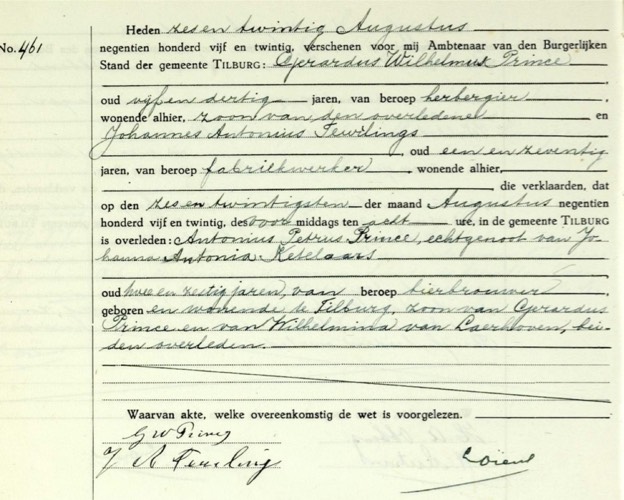 Heden zes en twintig Augustus
No. 461 negentien honderd vijf en twintig, verschenen voor mij Ambtenaar van den Burgerlijken
Stand der gemeente TILBURG: Gerardus Wilhelmus Prince
oud vijf en dertig jaren, van beroep herbergier,
wonende alhier, zoon van den overledene en
Johannes Antonius Teurlings
, oud een en zeventig
jaren, van beroep fabriekwerker, wonende alhier,
, die verklaarden, dat
op den zes en twintigsten der maand Augustus negentien
honderd vijf en twintig, des voor middags ten acht ure, in de gemeente TILBURG
is overleden: Antonius Petrus Prince, echtgenoot van Jo-
hanna Antonia Ketelaars
oud twee en zestig jaren, van beroep bierbrouwer,
geboren en wonende te Tilburg, zoon van Gerardus
Prince en van Wilhelmina van Laerhoven, bei-
den overleden.
Waarvan akte, welke overeenkomstig de wet is voorgelezen.
G W Prince
J A Teurlings